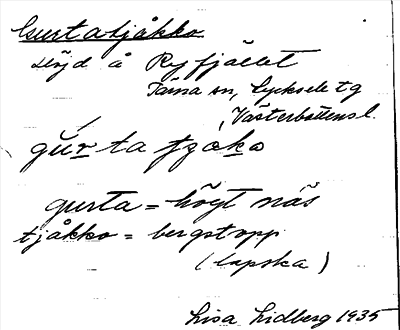 Gurtatjåkko
Höjd å Ryfjället
Tärna sn, Lycksele tg
Västerbottens l.
gŭrta tjåko
gurta = högt näs
tjåkko = bergstopp
(lapska)
Lisa Lidberg 1935